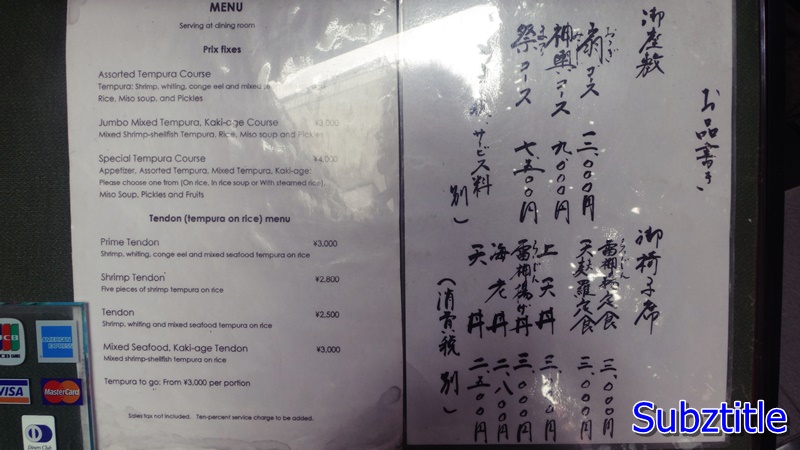 MENU
Serving at dining room
Prix fixes
Assorted Tempura Course
Tempura: Shrimp, whiting, conge eel and mixed
Rice, Miso soup, and Pickles
Jumbo Mixed Tempura, Kaki-age Course ¥3,000
Mixed Shrimp-shellfish Tempura, Rice, Miso soup and Pickles
Special Tempura Course ¥4,000
Appetizer, Assorted Tempura, Mixed Tempura, Kaki-age:
Please choose one from (On rice, In rice soup or With steamed rice)
Miso Soup, Pickles and Fruits
Tendon (tempura on rice) menu
Prime Tendon ¥3,000
Shrimp, whiting, conge eel and mixed seafood tempura on rice
Shrimp Tendon ¥2,800
Five pieces of shrimp tempura on rice
Tendon ¥2,500
Shrimp, whiting and mixed seafood tempura on rice
Mixed Seafood, Kaki-age Tendon ¥3,000
Mixed shrimp-shellfish tempura on rice
Tempura to go: From ¥3,000 per portion
Sales tax not included. Ten-percent service charge to be added.
お品書き
御座敷
扇コース 一二、〇〇〇円
神輿コース 九、〇〇〇円
祭コース 七、五〇〇円
サービス料 別)
御椅子席
定食 三、〇〇〇円
天麩羅定食 三、〇〇〇円
上天丼 三、〇〇〇円
雷神揚げ丼 三、〇〇〇円
海老丼 二、八〇〇円
天丼 二、五〇〇円
(消費税別)
JCB
AMERICAN EXPRESS
VISA
MasterCard
Diners Club
Subztitle